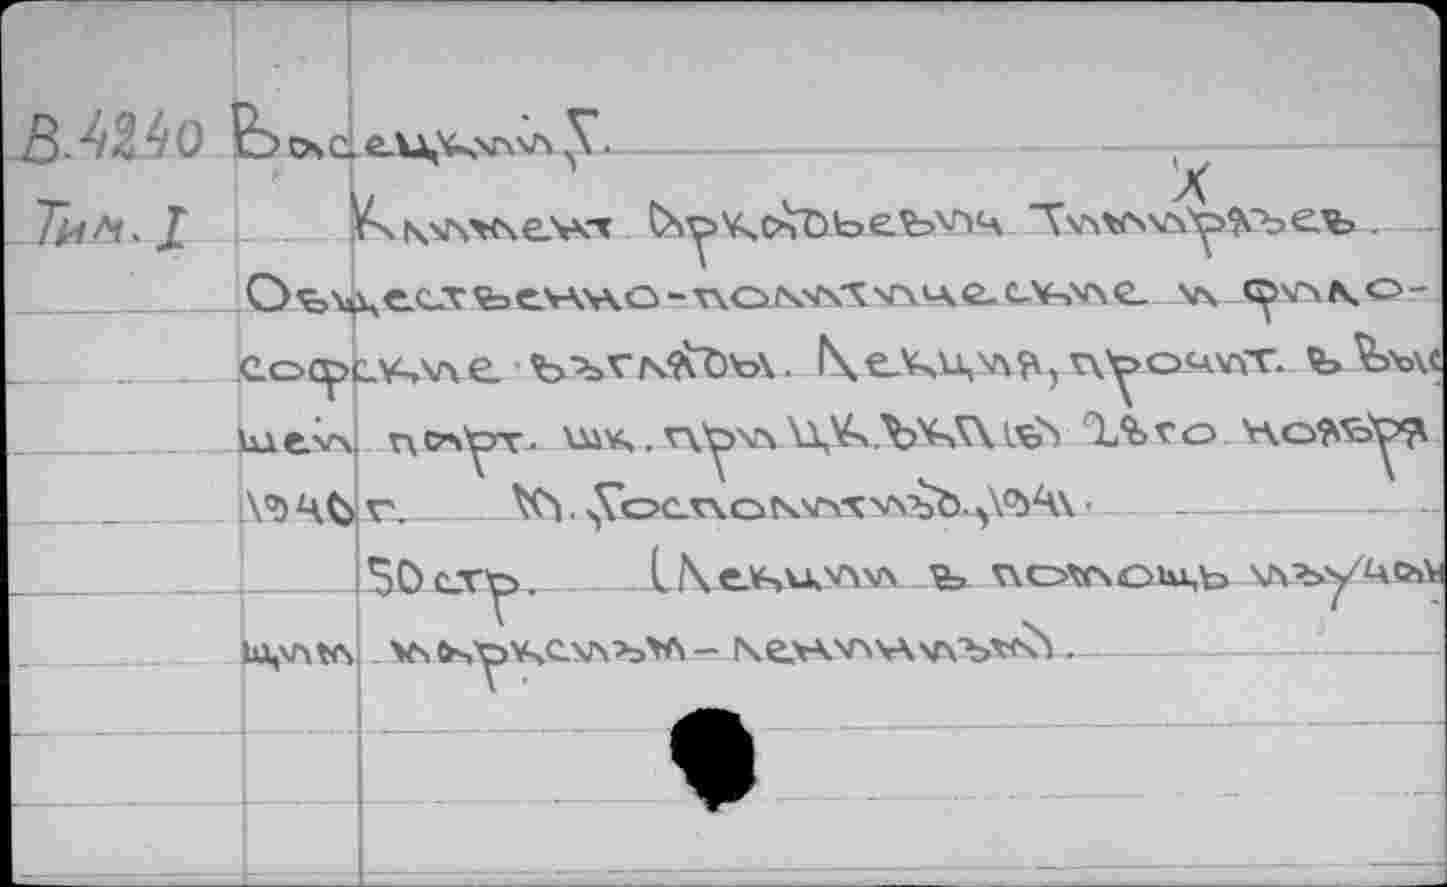 В.4240 Васецкий Г.
Тим. I Климент Аркадьевич Тимирязев.
Общественно-политические и фило-
софские взгляды. Лекция, прочит. в Выс
шей парт. шк. при ЦК.ВКП(б) 2%го ноября
1940 г. М. Госполитиздат.,1941.
50 стр. (Лекции в помощь изучаю
щим марксизм-ленинизм.